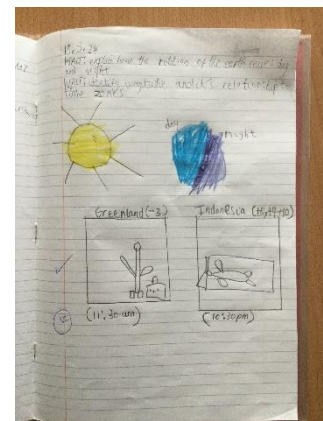 WALT: explain how the rotation of the earth causes day
and night
WALT: describe longitude and it's relationship to
time zones
day
night
Greenland (-3)
Indonesia (+8,+9+10)
(11:30am)
(10:30pm)